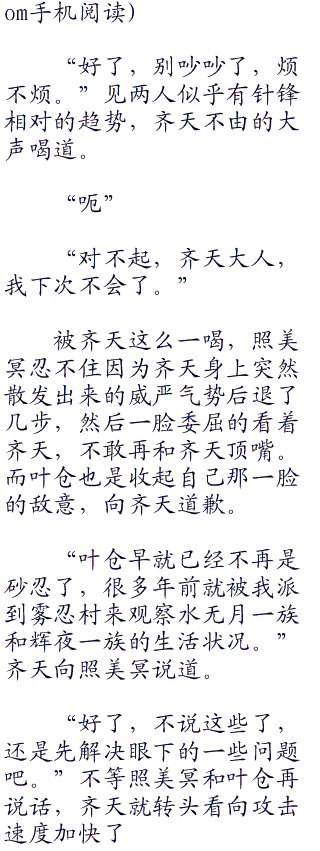 om手机阅读）
“好了，别吵吵了，烦
不烦。”见两人似乎有针锋
相对的趋势，齐天不由的大
声喝道。
“呃”
“对不起，齐天大人，
我下次不会了。”
被齐天这么一喝，照美
冥忍不住因为齐天身上突然
散发出来的威严气势后退了
几步，然后一脸委屈的看着
齐天，不敢再和齐天顶嘴。
而叶仓也是收起自己那一脸
的敌意，向齐天道歉。
“叶仓早就已经不再是
砂忍了，很多年前就被我派
到雾忍村来观察水无月一族
和辉夜一族的生活状况。”
齐天向照美冥说道。
“好了，不说这些了，
还是先解决眼下的一些问题
吧。”不等照美冥和叶仓再
说话，齐天就转头看向攻击
速度加快了